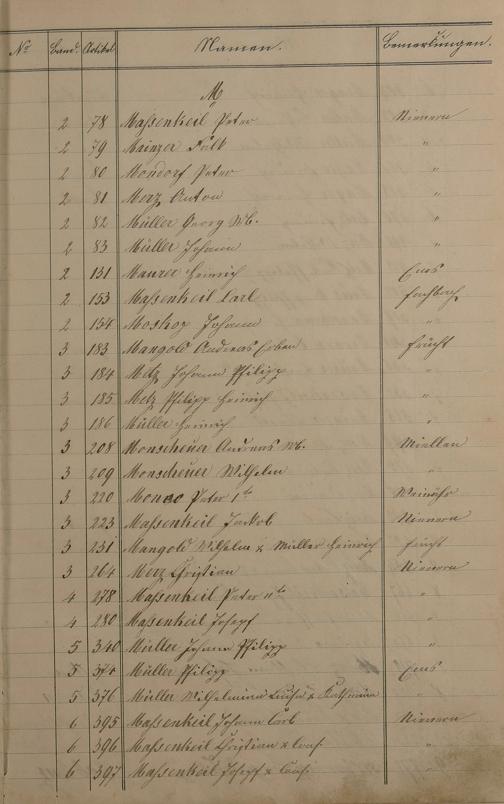 No Band. Artikel Namen. Bemerkungen.
M
2 78 Maßenkeil Peter Nievern
2 79 Mainzer Falk "
2 80 Mondorf Peter "
2 81 Merz Anton "
2 82 Müller Georg Wb. "
2 83 Müller Johann "
2 131 Maurer Heinrich Ems
2 153 Maßenkeil Carl Fachbach
2 154 Moskop Johann "
3 183 Mangold Andreas Erben Frücht
3 184 Metz Johann Philipp "
3 185 Metz Philipp Heinrich "
3 186 Müller Heinrich "
3 208 Monscheuer Andreas Wb. Miellen
3 209 Monscheuer Wilhelm "
3 220 Peter 1te Weinähr
3 223 Maßenkeil Jackob Nievern
3 231 Mangold Wilhelm & Müller Heinrich Frücht
3 264 Merz Christian Nievern
4 278 Maßenkeil Peter IIte "
4 280 Maßenkeil Josepf "
5 340 Müller Johann Philipp "
5 374 Müller Philipp Ems
5 376 Müller Wilhelmina Luise & Katharina "
6 395 Maßenkeil Johann Carl Nievern
6 396 Maßenkeil Christian & Cons. "
6 397 Maßenkeil Josepf & Cons. "